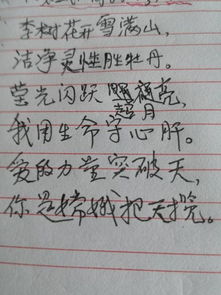 李树花开雪满山,
洁净灵性胜牡丹。
莹光闪跃照夜亮,
超月
我用生命学心肝。
爱的力量突破天,
你是嫦娥把天揽。